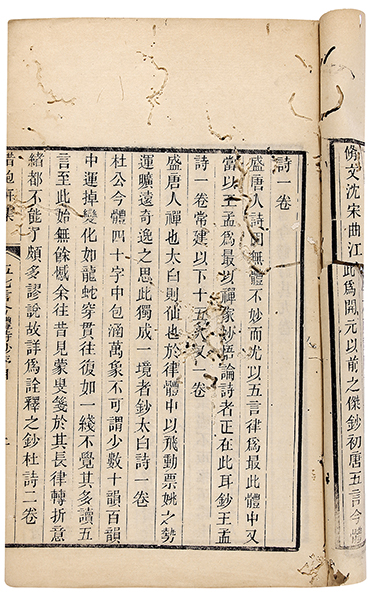 脩文沈宋曲江此為開元以前之傑鈔初唐五言今體
詩一卷
盛唐人詩固無體不妙而尤以五言律為最此體中又
當以王孟為最以禪家妙悟論詩者正在此耳鈔王孟
詩一卷常建以下十五家又一卷
盛唐人禪也太白則仙也於律體中以飛動票姚之勢
運曠遠奇逸之思此獨成一境者鈔太白詩一卷
杜公今體四十字中包涵萬象不可謂少數十韻百韻
中運掉變化如龍蛇穿貫往復如一綫不覺其多讀五
言至此始無餘憾余往昔見蒙叟箋於其長律轉折意
緒都不能了頗多謬說故詳為詮釋之鈔杜詩二卷